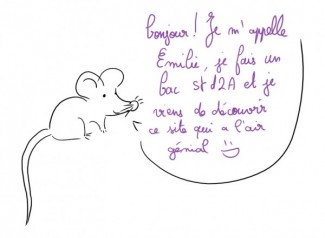 bonjour! Je m'appelle
Emilie, je fais un
bac std2A et je
viens de découvrir
ce site qui a l'air
génial